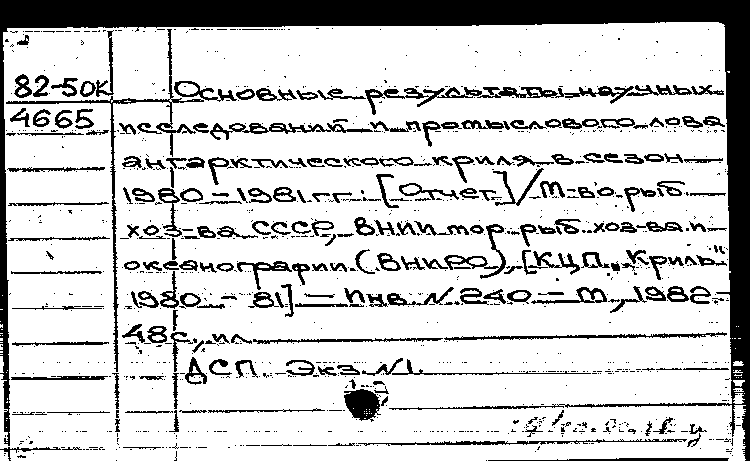 82-5ок Основные результаты научных
4665 исследований и промыслового лова
антарктического криля в сезон
1980-1981гг: [Отчет]/М-во рыб.
хоз-ва СССР, ВНИИ мор. рыб. хоз-ва и
океанографии (ВНИРО), [КЦП „Криль"
1980 - 81] - Инв. N 240 - М, 1982 -
48с., ил.
ДСП. Экз. N1.